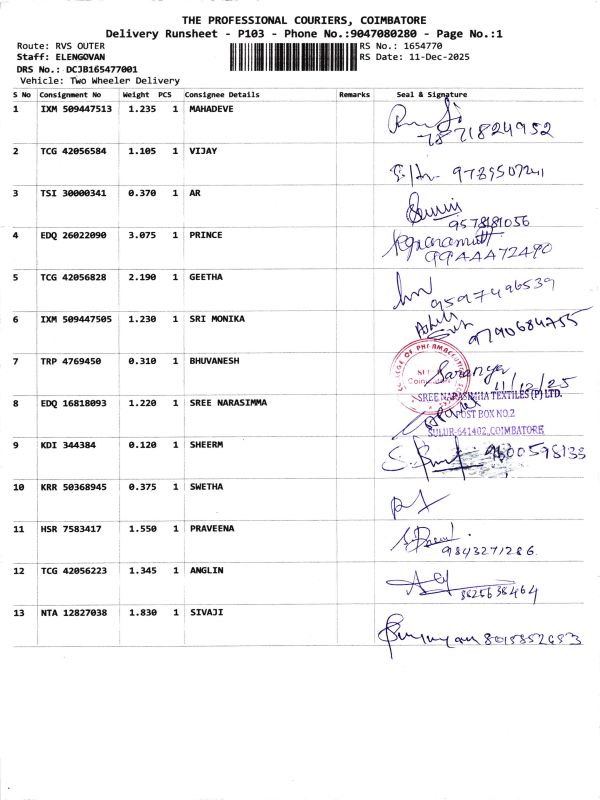 THE PROFESSIONAL COURIERS, COIMBATORE
Delivery Runsheet - P103 - Phone No.:9047080280 - Page No.:1
Route: RVS OUTER
RS No.: 1654770
Staff: ELENGOVAN
RS Date: 11-Dec-2025
DRS No.: DCJB165477001
Vehicle: Two Wheeler Delivery
S No Consignment No Weight PCS Consignee Details Remarks Seal & Signature
1 IXM 509447513 1.235 1 MAHADEVE
7871824952
2 TCG 42056584 1.105 1 VIJAY
9789507241
3 TSI 30000341 0.370 1 AR
9578181056
4 EDQ 26022090 3.075 1 PRINCE
99AAA72490
5 TCG 42056828 2.190 1 GEETHA
9597496539
6 IXM 509447505 1.230 1 SRI MONIKA
9790684755
7 TRP 4769450 0.310 1 BHUVANESH
Saranya 11/12/25
8 EDQ 16818093 1.220 1 SREE NARASIMMA
SREE NARASIMHA TEXTILES (P) LTD.
POST BOX NO.2
SULUR-641402, COIMBATORE
9 KDI 344384 0.120 1 SHEERM
9600598133
10 KRR 50368945 0.375 1 SWETHA
11 HSR 7583417 1.550 1 PRAVEENA
9843271286
12 TCG 42056223 1.345 1 ANGLIN
3825638464
13 NTA 12827038 1.830 1 SIVAJI
8015852653